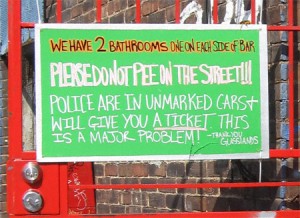 WE HAVE 2 BATHROOMS ONE ON EACH SIDE OF BAR
PLEASE DO NOT PEE ON THE STREET!!!
POLICE ARE IN UNMARKED CARS +
WILL GIVE YOU A TICKET THIS
IS A MAJOR PROBLEM! -THANK YOU
GLASSLANDS